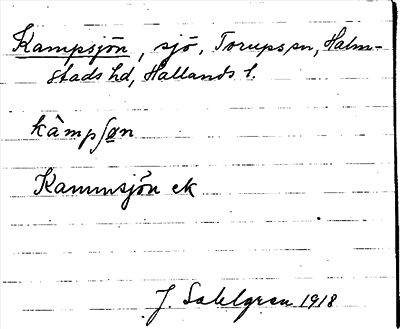 Kampsjön, sjö, Torups sn, Halm-
stads hd, Hallands l.
kàmpʃøn
Kammsjön ek
J. Sahlgren 1918